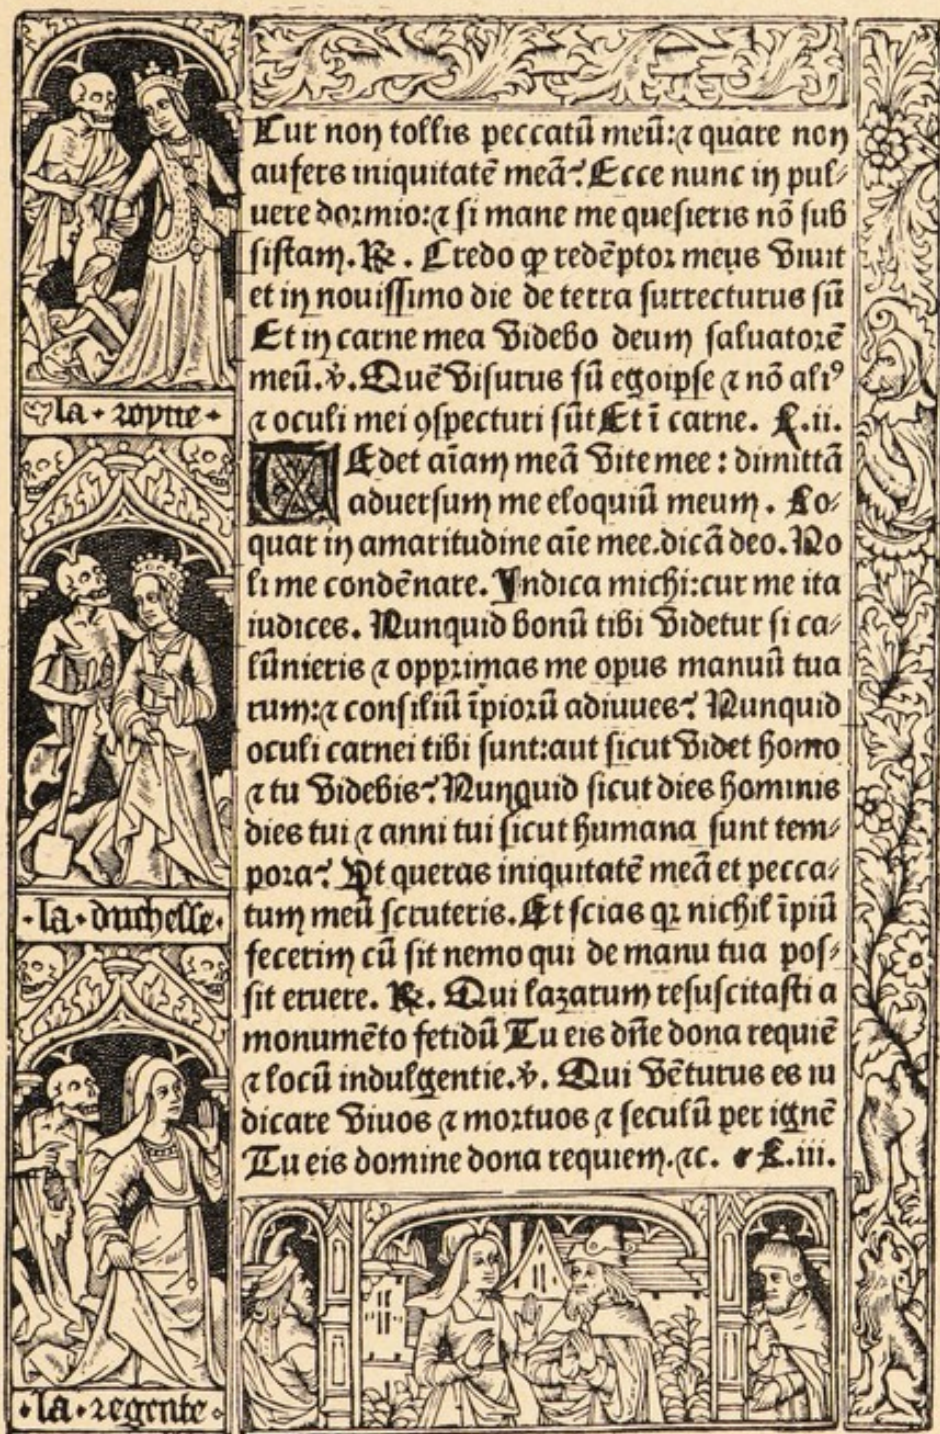 Cur non tollis peccatū meū: ⁊ quare non
aufers iniquitatē meā? Ecce nunc in pul⸗
uere dormio: ⁊ si mane me quesieris nō sub
sistam. ℟. Credo ꝙ redēptor meus viuit
et in nouissimo die de terra surrecturus sū
Et in carne mea videbo deum saluatorē
meū. ℣. Quē visurus sū egoipse ⁊ nō aliꝰ
⁊ oculi mei ꝯspecturi sūt Et ī carne. L.ii.
TEdet aīam meā vite mee: dimittā
aduersum me eloquiū meum. Lo⸗
quar in amaritudine aīe mee. dicā deo. No
li me condēnare. Indica michi: cur me ita
iudices. Nunquid bonū tibi videtur si ca⸗
lūnieris ⁊ opprimas me opus manuū tua
rum: ⁊ consiliū īpiorū adiuues? Nunquid
oculi carnei tibi sunt: aut sicut videt homo
⁊ tu videbis? Nunquid sicut dies hominis
dies tui ⁊ anni tui sicut humana sunt tem⸗
pora? Ut queras iniquitatē meā et pecca⸗
tum meū scruteris. Et scias qꝛ nichil īpiū
fecerim cū sit nemo qui de manu tua pos⸗
sit eruere. ℟. Qui lazarum resuscitasti a
monumēto fetidū Tu eis dn̄e dona requiē
⁊ locū indulgentie. ℣. Qui vēturus es iu
dicare viuos ⁊ mortuos ⁊ seculū per ignē
Tu eis domine dona requiem. ⁊c. L.iii.
la royne
la duchesse
la regente